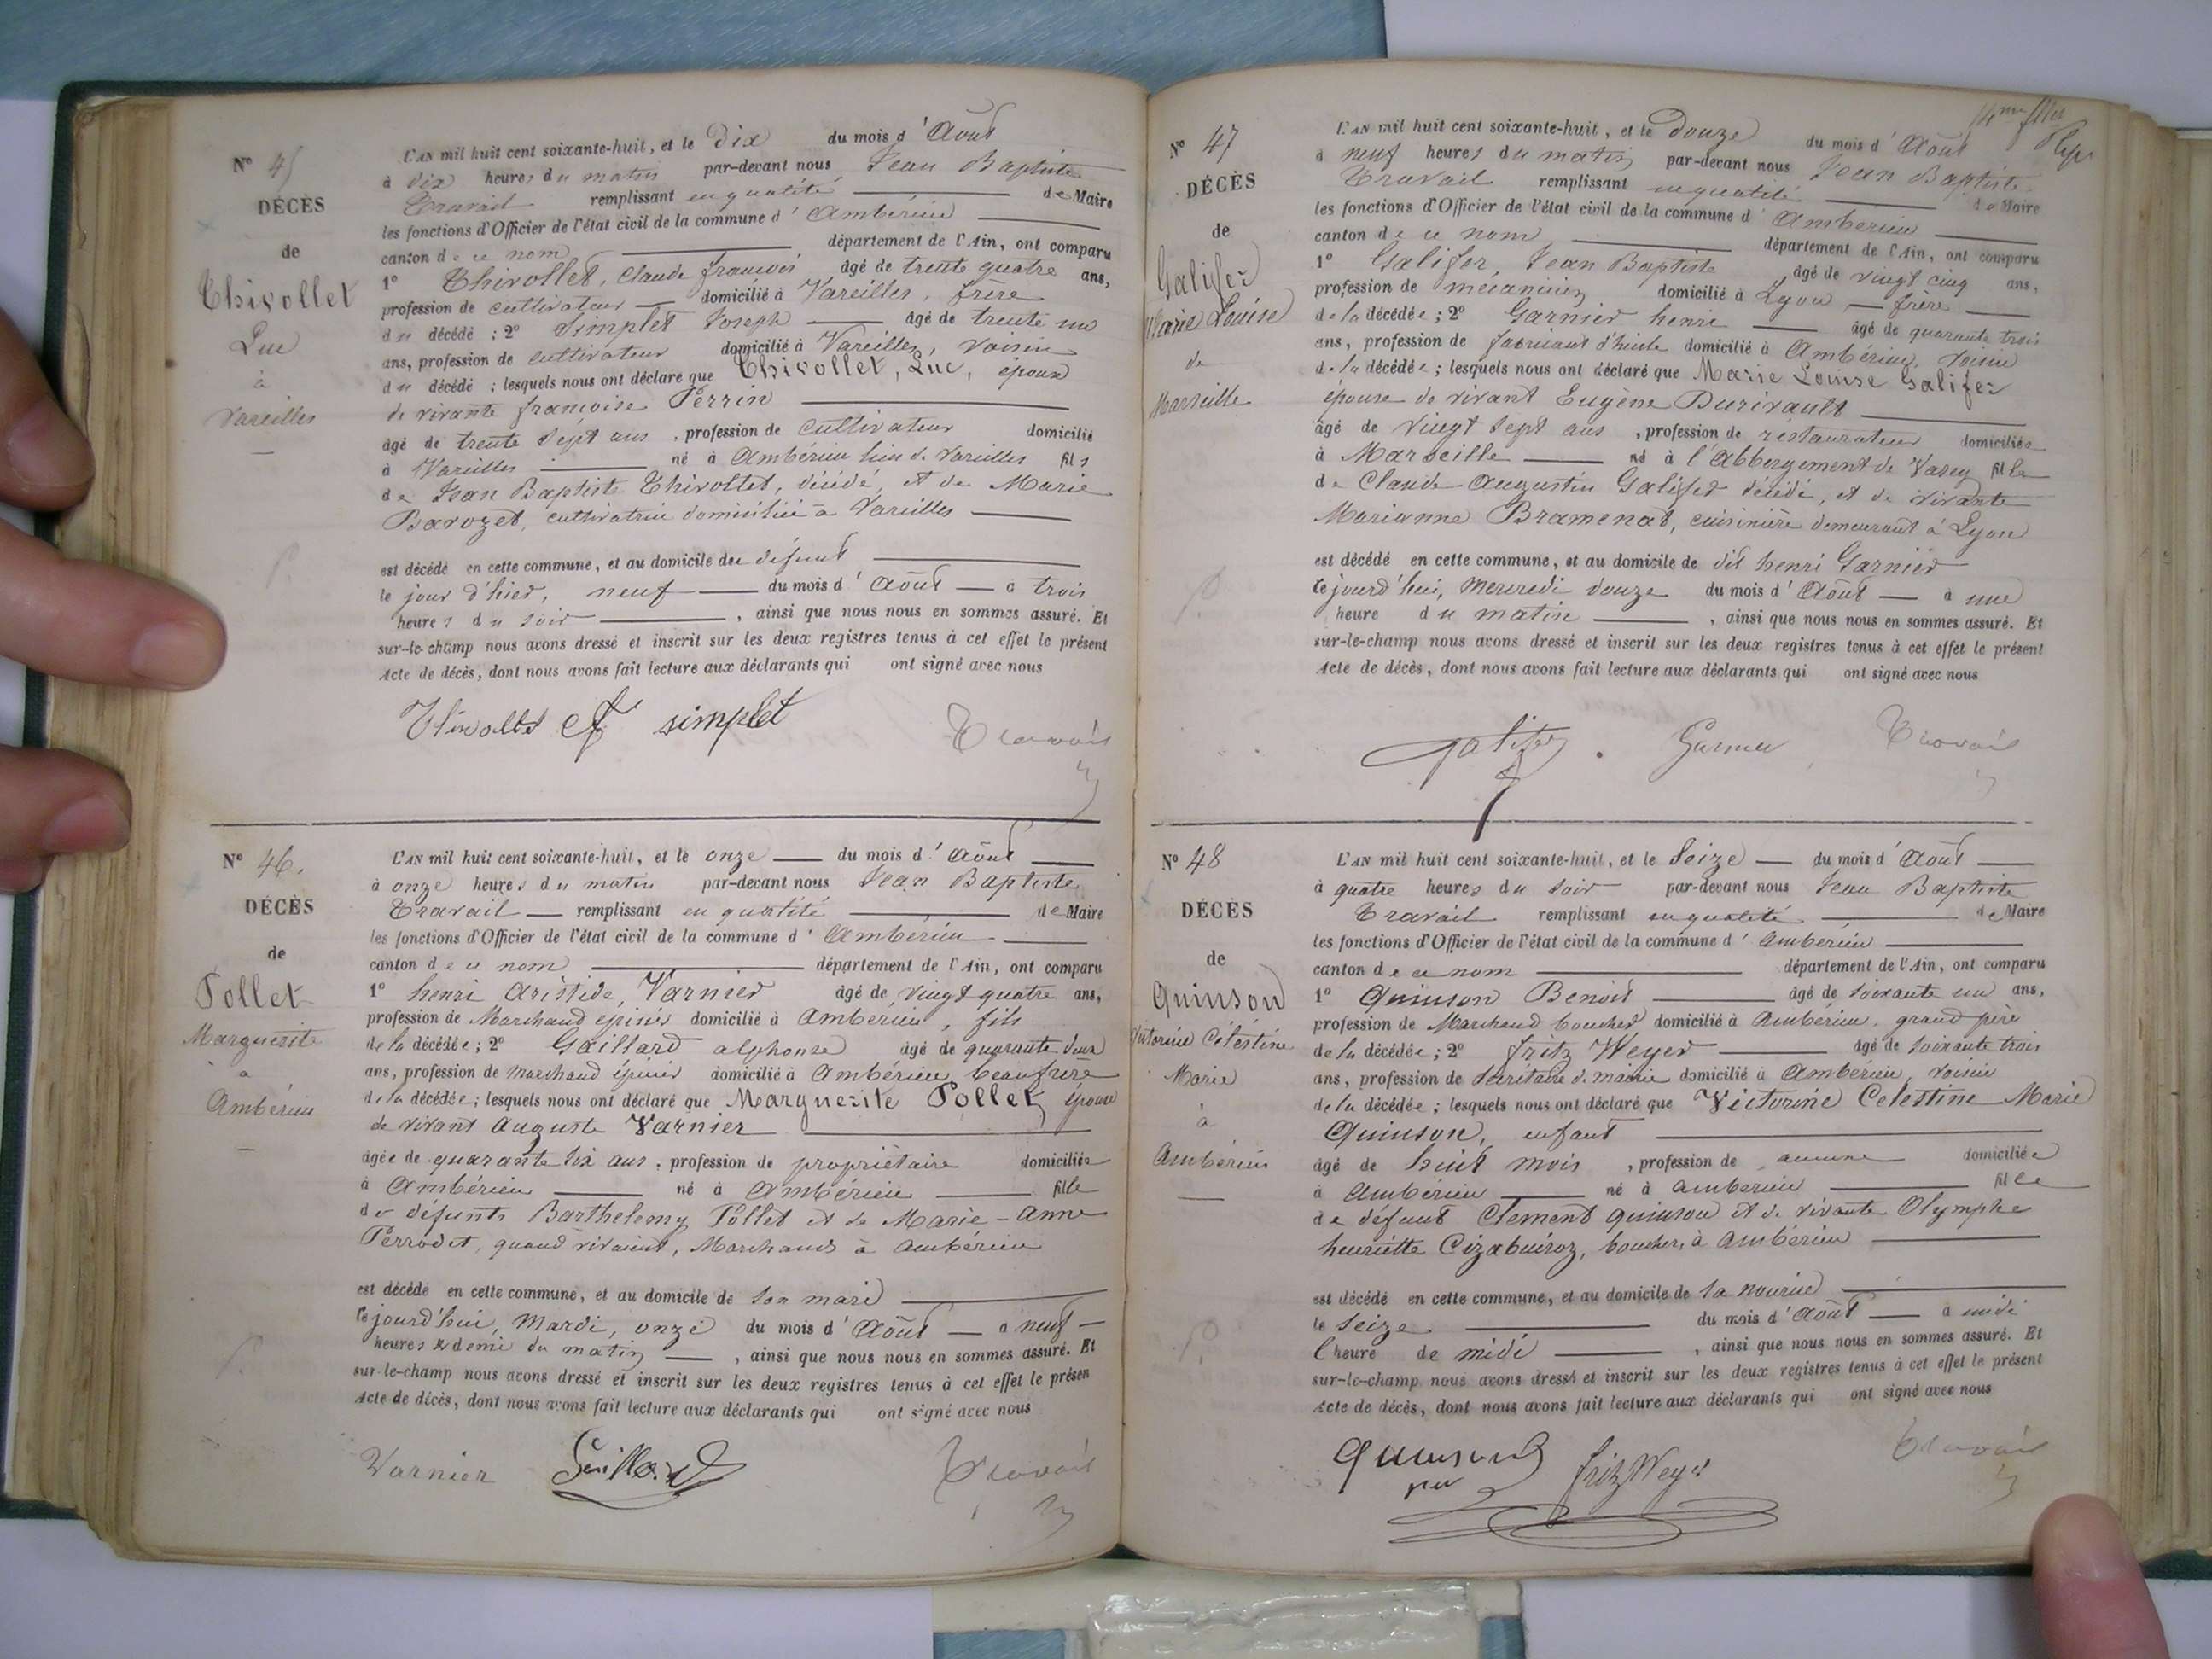 N° 45
DÉCÈS
de
Thivollet
Luc
à
Vareilles
L'AN mil huit cent soixante-huit, et le Dix du mois d'Août
à dix heures du matin par-devant nous Jean Baptiste
Travail remplissant en qualité de Maire
les fonctions d'Officier de l'état civil de la commune d'Ambérieu
canton de ce nom département de l'Ain, ont comparu
1° Thivollet, Claude françois âgé de trente quatre ans,
profession de cultivateur domicilié à Vareilles, frère
du décédé ; 2° Simplet Joseph âgé de trente un
ans, profession de cultivateur domicilié à Vareilles, voisin
du décédé ; lesquels nous ont déclaré que Thivollet, Luc, époux
de vivante françoise Perrin
âgé de trente sept ans, profession de cultivateur domicilié
à Vareilles né à Ambérieu lieu de Vareilles fils
de Jean Baptiste Thivollet, décédé, et de Marie
Barozet, cultivatrice domiciliée à Vareilles
est décédé en cette commune, et au domicile du défunt
le jour d'hier, neuf du mois d'Août à trois
heures du soir, ainsi que nous nous en sommes assuré. Et
sur-le-champ nous avons dressé et inscrit sur les deux registres tenus à cet effet le présent
Acte de décès, dont nous avons fait lecture aux déclarants qui ont signé avec nous
Thivollet cf simplet Travail
N° 46.
DÉCÈS
de
Pollet
Marguerite
à
Ambérieu
L'AN mil huit cent soixante-huit, et le onze du mois d'Août
à onze heures du matin par-devant nous Jean Baptiste
Travail remplissant en qualité de Maire
les fonctions d'Officier de l'état civil de la commune d'Ambérieu
canton de ce nom département de l'Ain, ont comparu
1° henri Aristide, Varnier âgé de vingt quatre ans,
profession de Marchand epicier domicilié à Ambérieu, fils
de la décédée ; 2° Gaillard alphonse âgé de quarante deux
ans, profession de marchand épicier domicilié à Ambérieu, beaufrère
de la décédée ; lesquels nous ont déclaré que Marguerite Pollet, épouse
de vivant Auguste Varnier
âgée de quarante six ans, profession de propriétaire domiciliée
à Ambérieu né à Ambérieu fille
de défunts Barthelemy Pollet et de Marie-Anne
Perrodet, quand vivaient, Marchands à Ambérieu
est décédé en cette commune, et au domicile de son mari
Cejourd'hui, Mardi, onze du mois d'Août à neuf
heures & demie du matin, ainsi que nous nous en sommes assuré. Et
sur-le-champ nous avons dressé et inscrit sur les deux registres tenus à cet effet le présen
Acte de décès, dont nous avons fait lecture aux déclarants qui ont signé avec nous
Varnier Gaillard Travail
N° 47
DÉCÈS
de
Galifer
Marie Louise
de
Marseille
L'AN mil huit cent soixante-huit, et le Douze du mois d'Août
à neuf heures du matin par-devant nous Jean Baptiste
Travail remplissant en qualité de Maire
les fonctions d'Officier de l'état civil de la commune d'Ambérieu
canton de ce nom département de l'Ain, ont comparu
1° Galifer, Jean Baptiste âgé de vingt cinq ans,
profession de mécanicien domicilié à Lyon frère
de la décédée ; 2° Garnier henri âgé de quarante trois
ans, profession de fabricant d'huile domicilié à Ambérieu, voisin
de la décédée ; lesquels nous ont déclaré que Marie Louise Galifer
épouse de vivant Eugène Durivault
âgé de vingt sept ans, profession de restaurateur domiciliée
à Marseille né à l'Abbergement de Varey fille
de Claude Augustin Galifer décédé, et de vivante
Marianne Bramenat, cuisinière demeurant à Lyon
est décédé en cette commune, et au domicile de dit henri Garnier
Cejourd'hui, Mercredi douze du mois d'Août à une
heure du matin, ainsi que nous nous en sommes assuré. Et
sur-le-champ nous avons dressé et inscrit sur les deux registres tenus à cet effet le présent
Acte de décès, dont nous avons fait lecture aux déclarants qui ont signé avec nous
Galifer Garnier Travail
N° 48
DÉCÈS
de
Quinson
Victorine Célestine
Marie
à
Ambérieu
L'AN mil huit cent soixante-huit, et le Seize du mois d'Août
à quatre heures du soir par-devant nous Jean Baptiste
Travail remplissant en qualité de Maire
les fonctions d'Officier de l'état civil de la commune d'Ambérieu
canton de ce nom département de l'Ain, ont comparu
1° Quinson Benoit âgé de soixante un ans,
profession de Marchand boucher domicilié à Ambérieu, grand père
de la décédée ; 2° fritz Weyer âgé de soixante trois
ans, profession de Secrétaire de mairie domicilié à Ambérieu, voisin
de la décédée ; lesquels nous ont déclaré que Victorine Celestine Marie
Quinson, enfant
âgé de huit mois, profession de aucune domiciliée
à Ambérieu né à Ambérieu fille
de défunt Clement quinson et de vivante Olymphe
henriette Cizabuiroz, bouchers à Ambérieu
est décédé en cette commune, et au domicile de sa nourice
le Seize du mois d'Août à midi
l'heure de midi, ainsi que nous nous en sommes assuré. Et
sur-le-champ nous avons dressé et inscrit sur les deux registres tenus à cet effet le présent
Acte de décès, dont nous avons fait lecture aux déclarants qui ont signé avec nous
Quinson fritz Weyer Travail